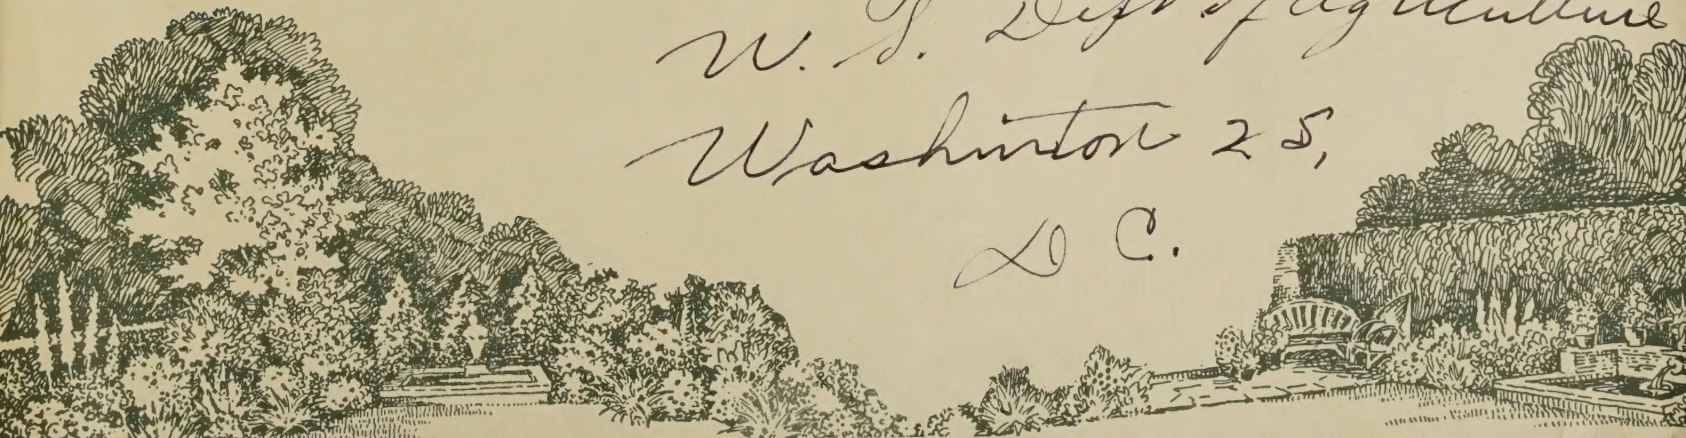 U. S. Dept. of Agriculture
Washinton 25,
D C.